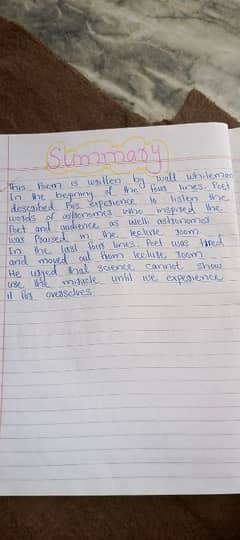 Summary
This Poem is written by wall whiteman
In the beginning of the four lines. Poet
described his experience to listen the
words of astronomer who inspired the
Poet and audience as well astronomer
was Praised in the lecture room
In the last four lines. Poet was tired
and moved out from lecture room
He urged that science cannot show
use the miracle until we experience
it its overselves